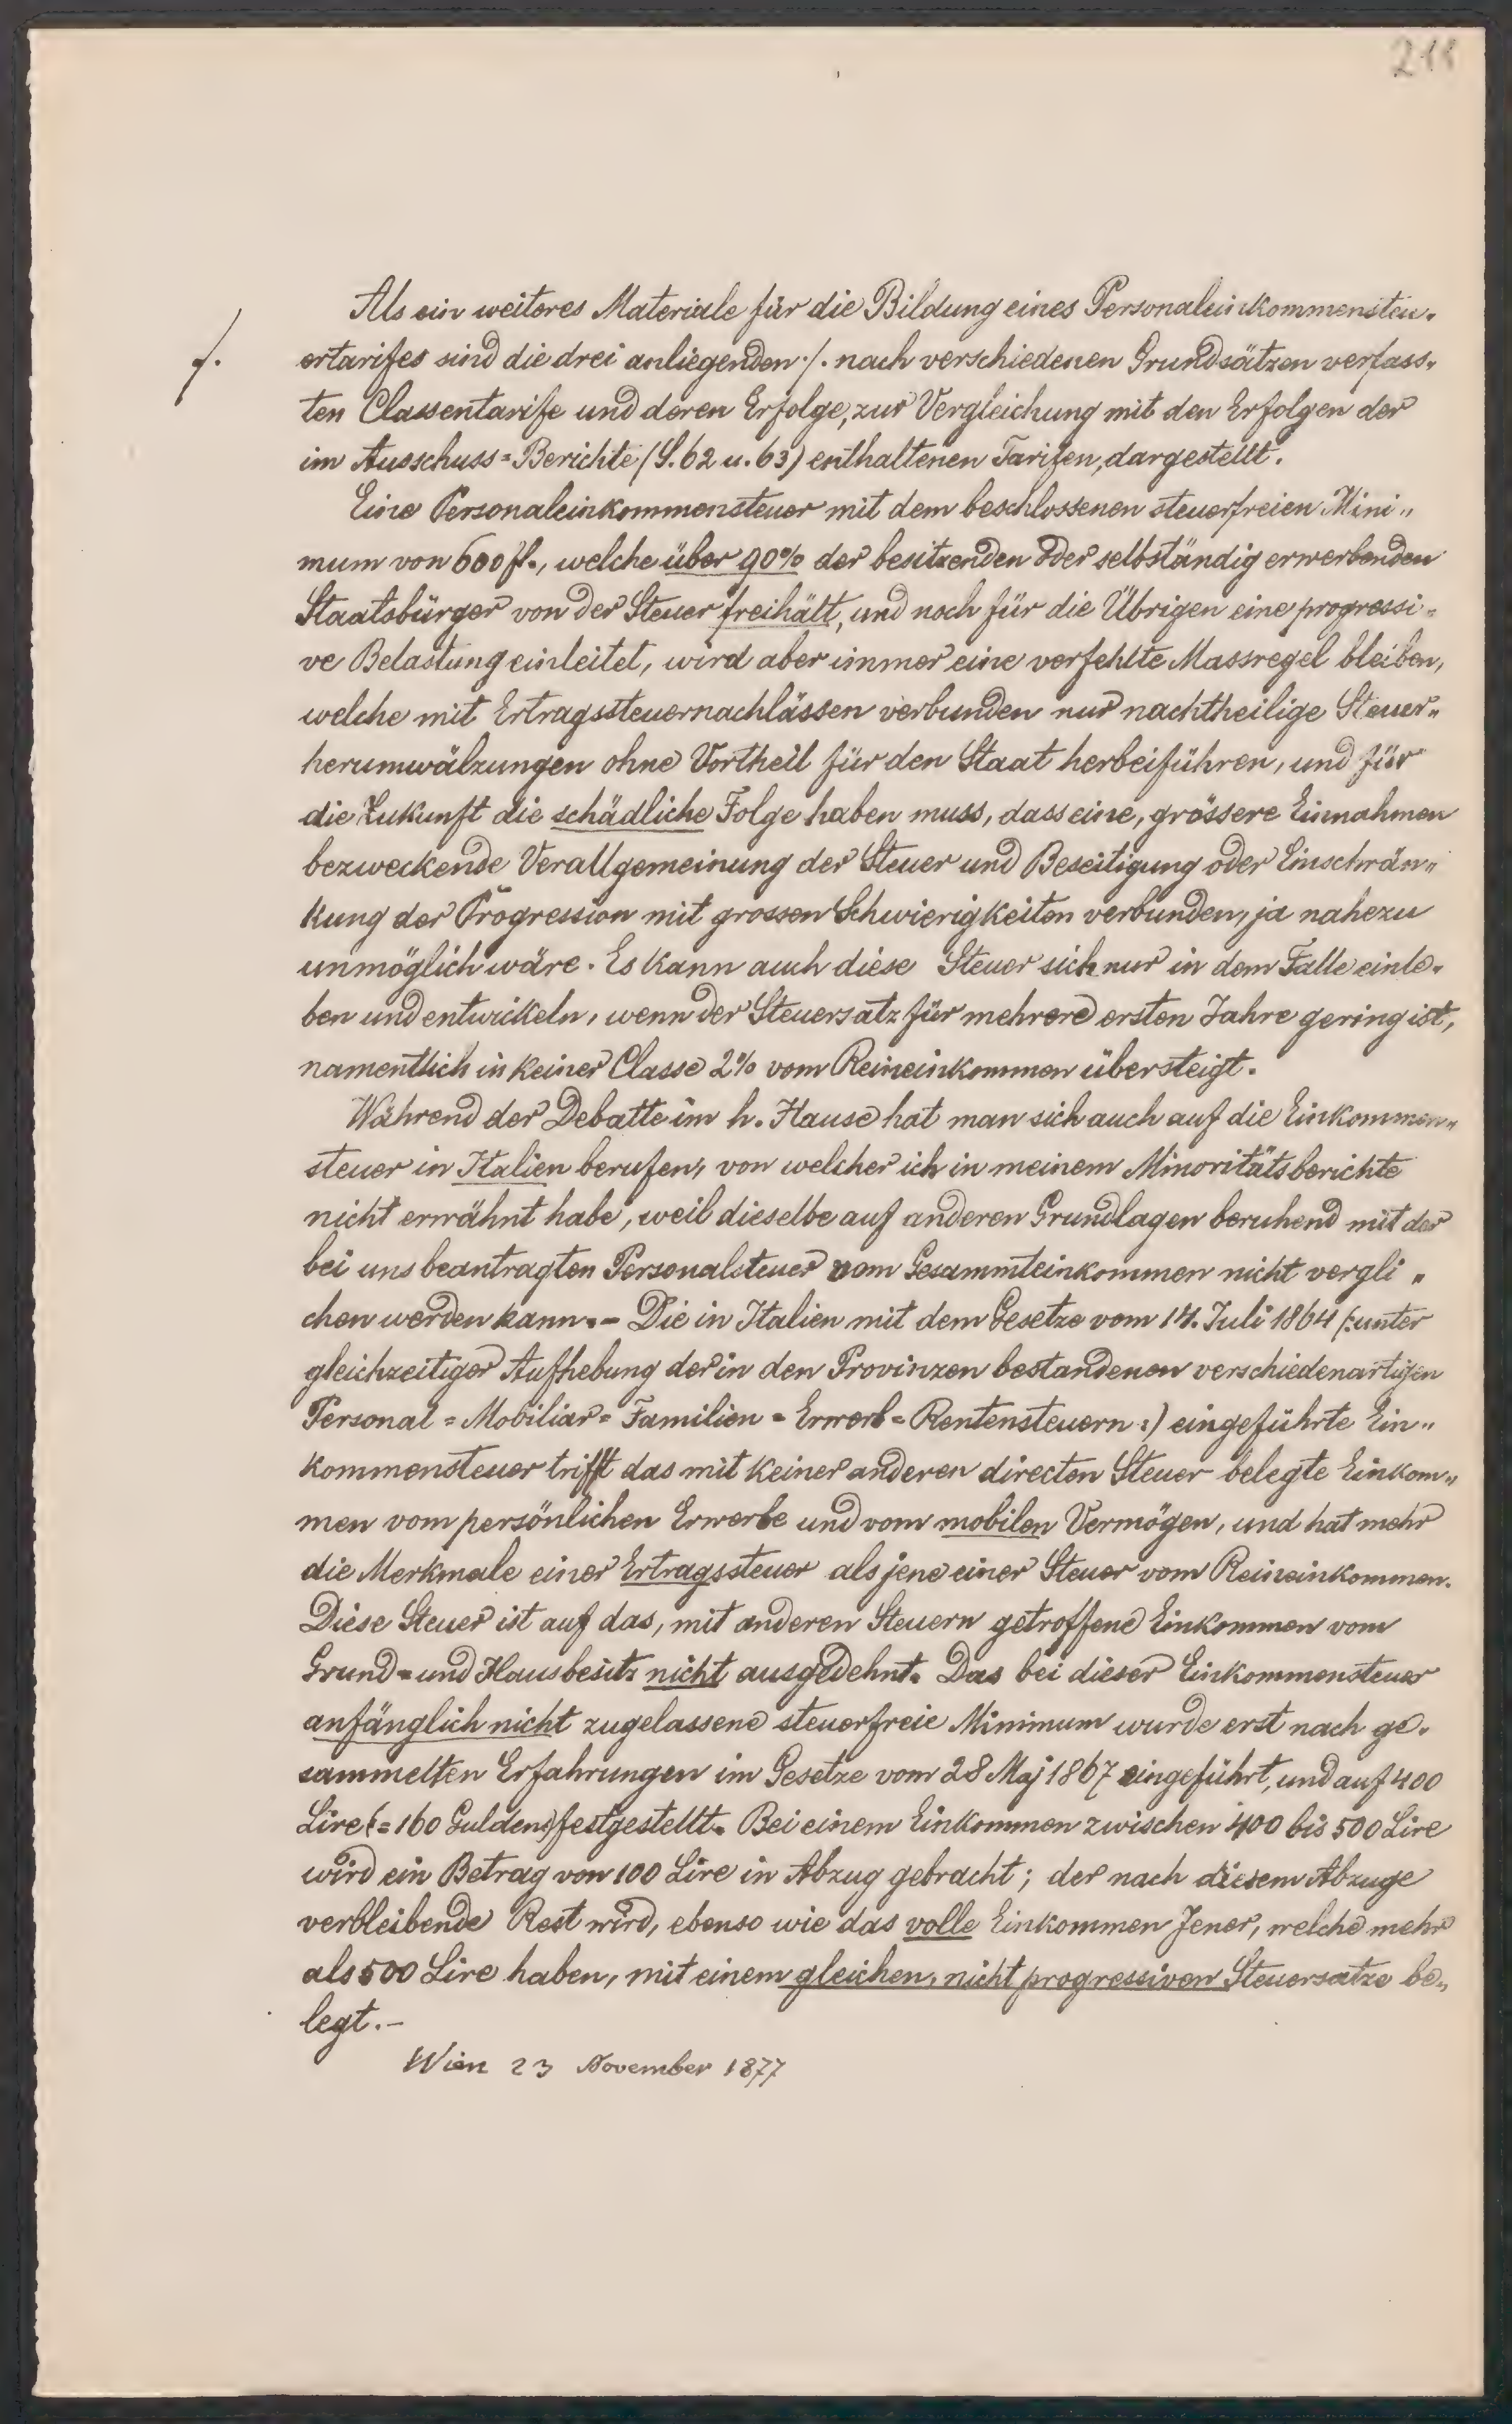 211
Als ein weiteres Materiale für die Bildung eines Personaleinkommensteu-
./. ertarifes sind die drei anliegenden ./. nach verschiedenen Grundsätzen verfass-
ten Classentarife und deren Erfolge, zur Vergleichung mit den Erfolgen der
im Ausschuss=Berichte (S. 62 u. 63) enthaltenen Tarifen, dargestellt.
Eine Personaleinkommensteuer mit dem beschlossenen steuerfreien Mini„
mum von 600 fl., welche über 90% der besitzenden oder selbständig erwerbenden
Staatsbürger von der Steuer freihält, und noch für die Übrigen eine progressi=
ve Belastung einleitet, wird aber immer eine verfehlte Massregel bleiben,
welche mit Ertragssteuernachlässen verbunden nur nachtheilige Steuer„
herumwälzungen ohne Vortheil für den Staat herbeiführen, und für
die Zukunft die schädliche Folge haben muss, dass eine, grössere Einnahmen
bezweckende Verallgemeinung der Steuer und Beseitigung oder Einschrän„
kung der Progression mit grossen Schwierigkeiten verbunden, ja nahezu
unmöglich wäre. Es kann auch diese Steuer sich nur in dem Falle einle-
ben und entwickeln, wenn der Steuersatz für mehrere ersten Jahre gering ist,
namentlich in keiner Classe 2% vom Reineinkommen übersteigt.
Während der Debatte im h. Hause hat man sich auch auf die Einkommen„
steuer in Italien berufen, von welcher ich in meinem Minoritätsberichte
nicht erwähnt habe, weil dieselbe auf anderen Grundlagen beruhend mit der
bei uns beantragten Personalsteuer vom Gesammteinkommen nicht vergli„
chen werden kann. – Die in Italien mit dem Gesetze vom 14. Juli 1864 (: unter
gleichzeitiger Aufhebung der in den Provinzen bestandenen verschiedenartigen
Personal = Mobiliar = Familien = Erwerb = Rentensteuern :) eingeführte Ein„
kommensteuer trifft das mit keiner anderen directen Steuer belegte Einkom„
men vom persönlichen Erwerbe und vom mobilen Vermögen, und hat mehr
die Merkmale einer Ertragssteuer als jene einer Steuer vom Reineinkommen.
Diese Steuer ist auf das, mit anderen Steuern getroffene Einkommen vom
Grund= und Hausbesitz nicht ausgedehnt. Das bei dieser Einkommensteuer
anfänglich nicht zugelassene steuerfreie Minimum wurde erst nach ge-
sammelten Erfahrungen im Gesetze vom 28 Maj 1867 eingeführt, und auf 400
Lire (= 160 Gulden) festgestellt. Bei einem Einkommen zwischen 400 bis 500 Lire
wird ein Betrag von 100 Lire in Abzug gebracht; der nach diesem Abzuge
verbleibende Rest wird, ebenso wie das volle Einkommen Jener, welche mehr
als 500 Lire haben, mit einem gleichen, nicht progressiven Steuersatze be„
legt. –
Wien 23 November 1877